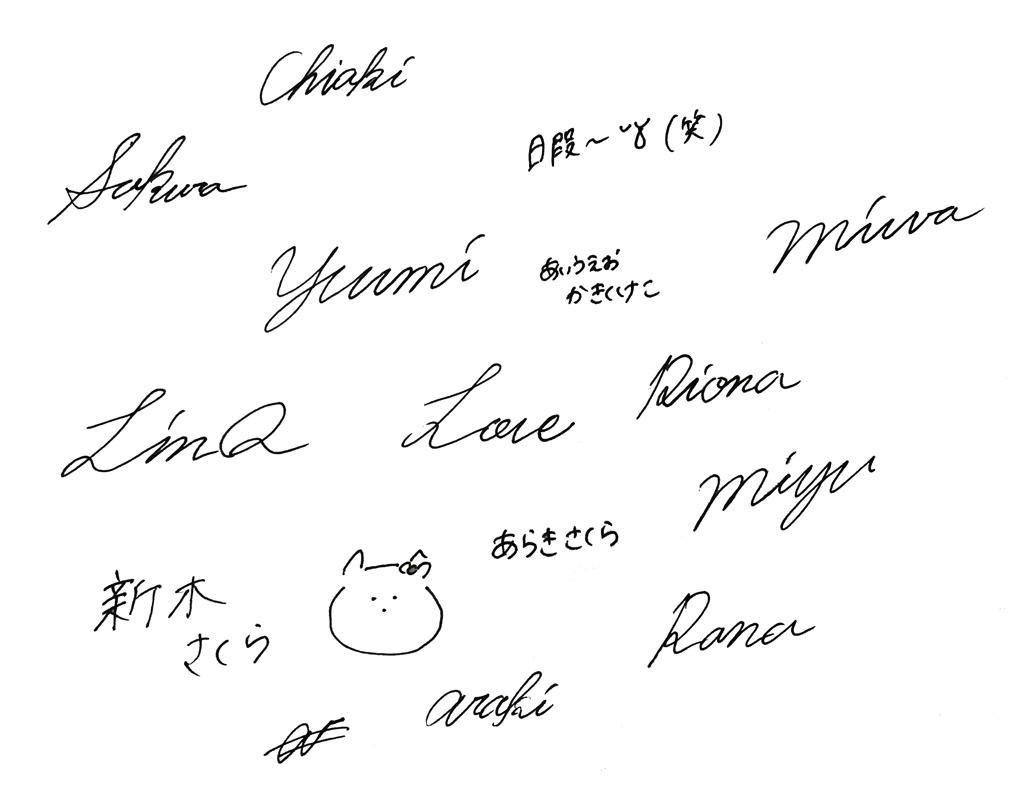 Chiaki
Sakura
日暇〜
(笑)
Yuumi
あいうえお
かきくけこ
Miwa
LinQ
Love
Riona
Miyu
あらきさくら
新木
さくら
Rana
araki